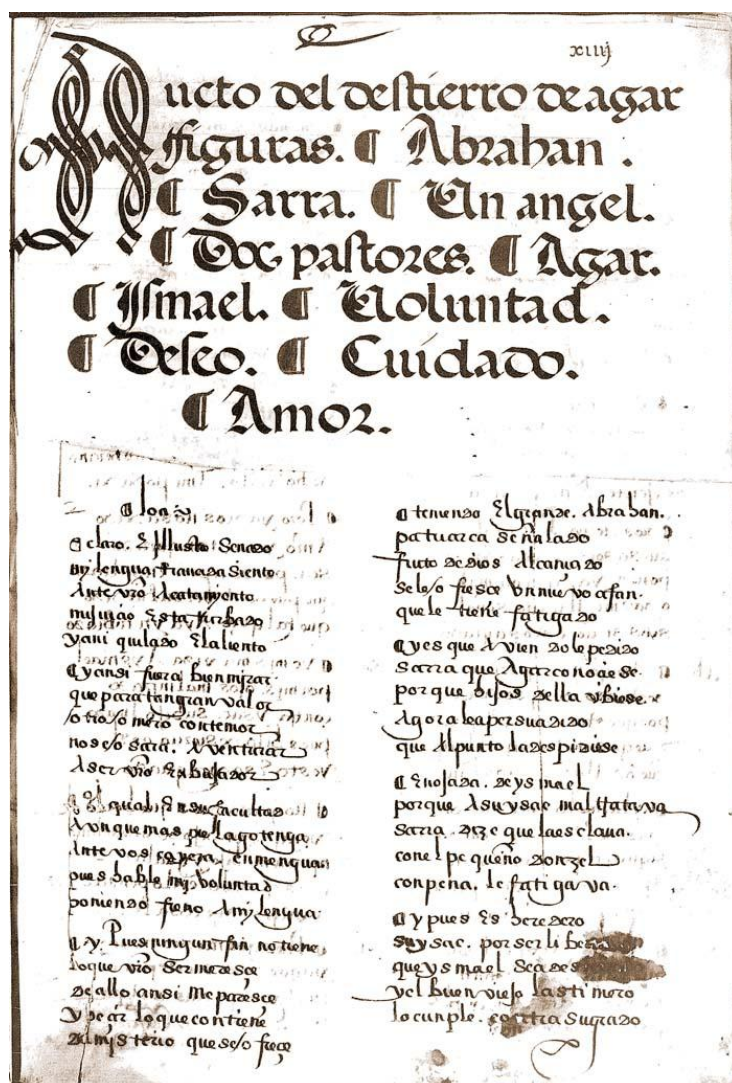 xiiij
Aucto del destierro de agar
figuras. ¶ Abrahan.
¶ Sarra. ¶ Un angel.
¶ Dos pastores. ¶ Agar.
¶ Ysmael. ¶ Voluntad.
¶ Deseo. ¶ Cuidado.
¶ Amor.
¶ loa
¶ claro. E yllustre senado
my lengua travada siento
Ante vro Acatamyento
Esta turbado
y ani quilado El aliento
¶ y ansi fuera bien mirar
que para tan gran valor
so tioso mero con temor
no se osara. A venturar
A ser vro Enbaxador
qual En su facultad
Avn que mas tenga
Ante vos en mengua
pues hable my voluntad
poniendo freno A my lengua
¶ y. Pues ningun fin no tiene
lo que vro ser meresce
de allo ansi me paresce
y decir lo que contiene
del misterio que se ofrece
¶ teniendo El grande. Abrahan.
patriarca señalado
fruto de dios Alcançado
se le ofresce vn nuevo afan.
que le tiene fatigado
¶ y es que A vien dole pedido
sarra que Agar conosciese
porque hijos della vbiese.
Agora le a persuadido
que Al punto la despidiese
¶ Enojada. de ysmael
porque A su ysac maltratava
sarra dize que la esclava.
con el pequeño donzel
con pena. le fatigava.
¶ y pues Es heredero
su ysac. por ser li
que ysmael sea des
y el buen viejo lastimero
lo cunple. contra su grado